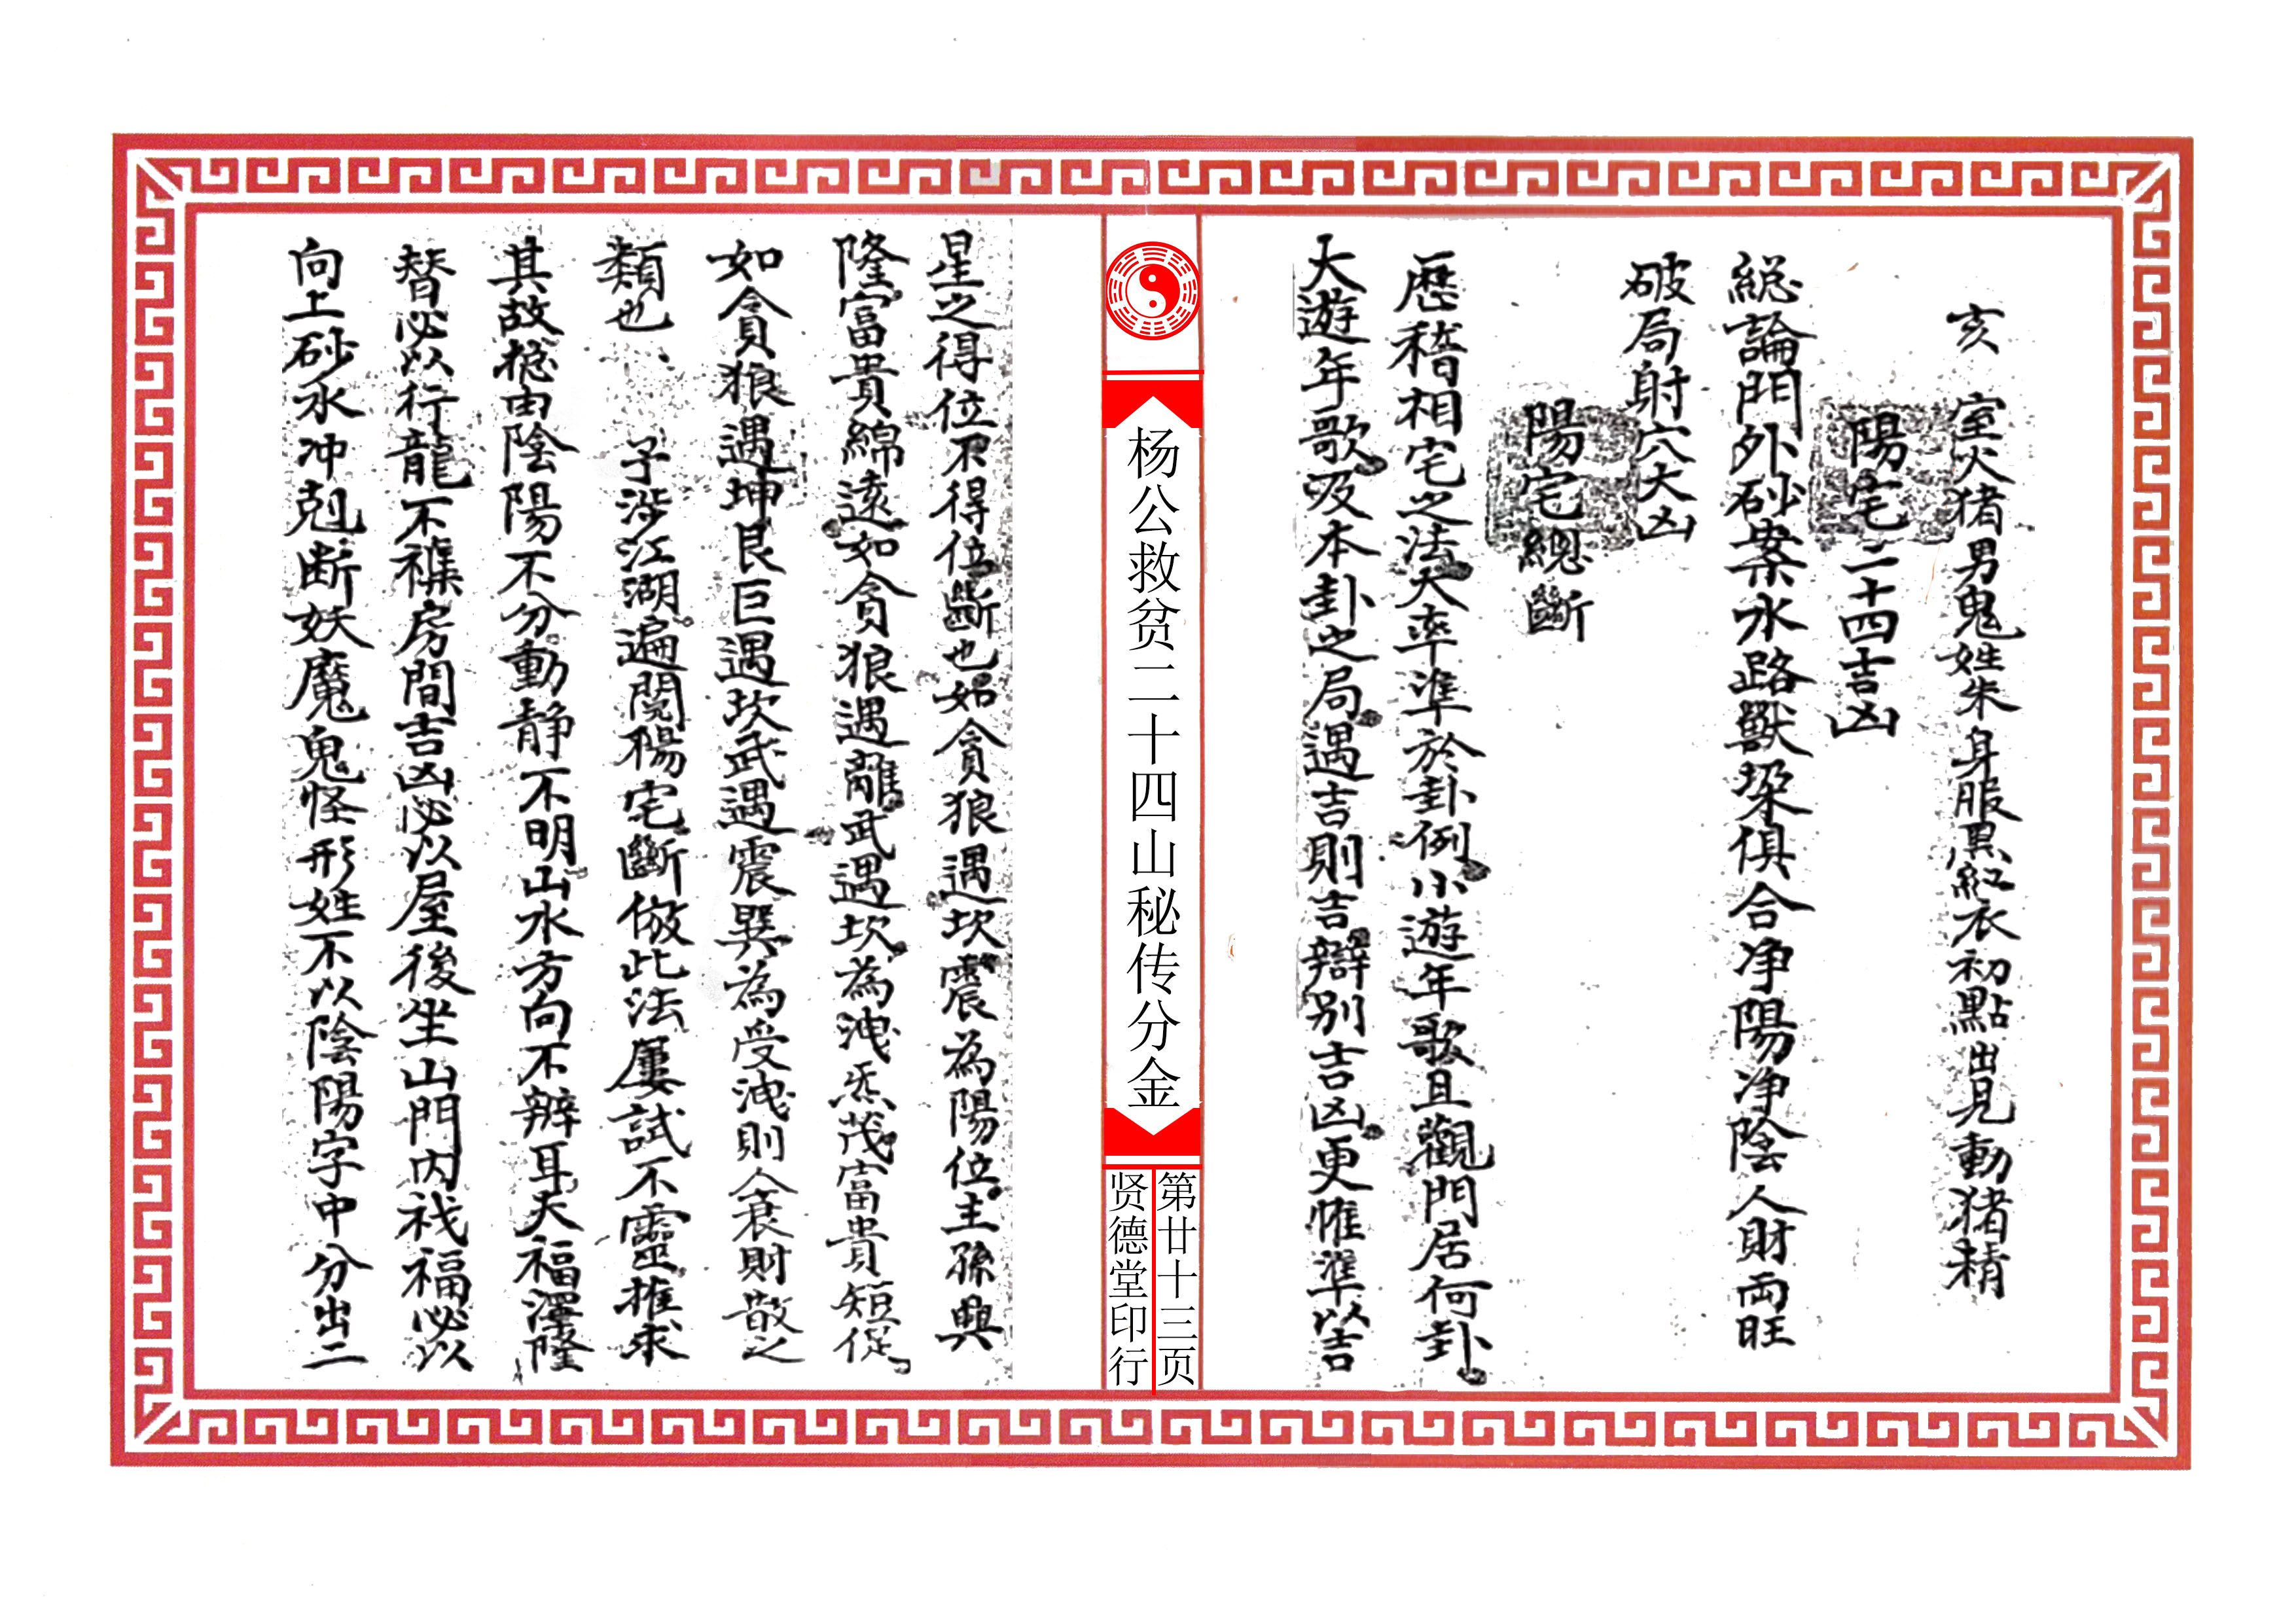 亥　室火猪男鬼姓朱身服黑紅衣初點出見動猪精
陽宅二十四吉凶
総論門外砂案水路獸操俱合净陽净陰人財両旺
破局射穴大凶
陽宅總斷
歷稽相宅之法大率準於卦例小遊年歌且觀門居何卦
大遊年歌及本卦之局遇吉則吉辯别吉凶更惟準以吉
杨公救贫二十四山秘传分金
第廿十三页
贤德堂印行
星之得位不得位斷也如貪狼遇坎震為陽位主孫興
隆富貴綿遠如貪狼遇離武遇坎為洩炁茂富貴短促
如貪狼遇坤艮巨遇坎武遇震巽為受洩則人衰財散之
類也　子涉江湖遍閱陽宅斷倣此法屢試不靈推求
其故總由陰陽不分動静不明山水方向不辨耳夫福澤隆
替必以行龍不襍房間吉凶必以屋後坐山門内祸福必以
向上砂水冲剋断妖魔鬼怪形姓不以陰陽字中分出二